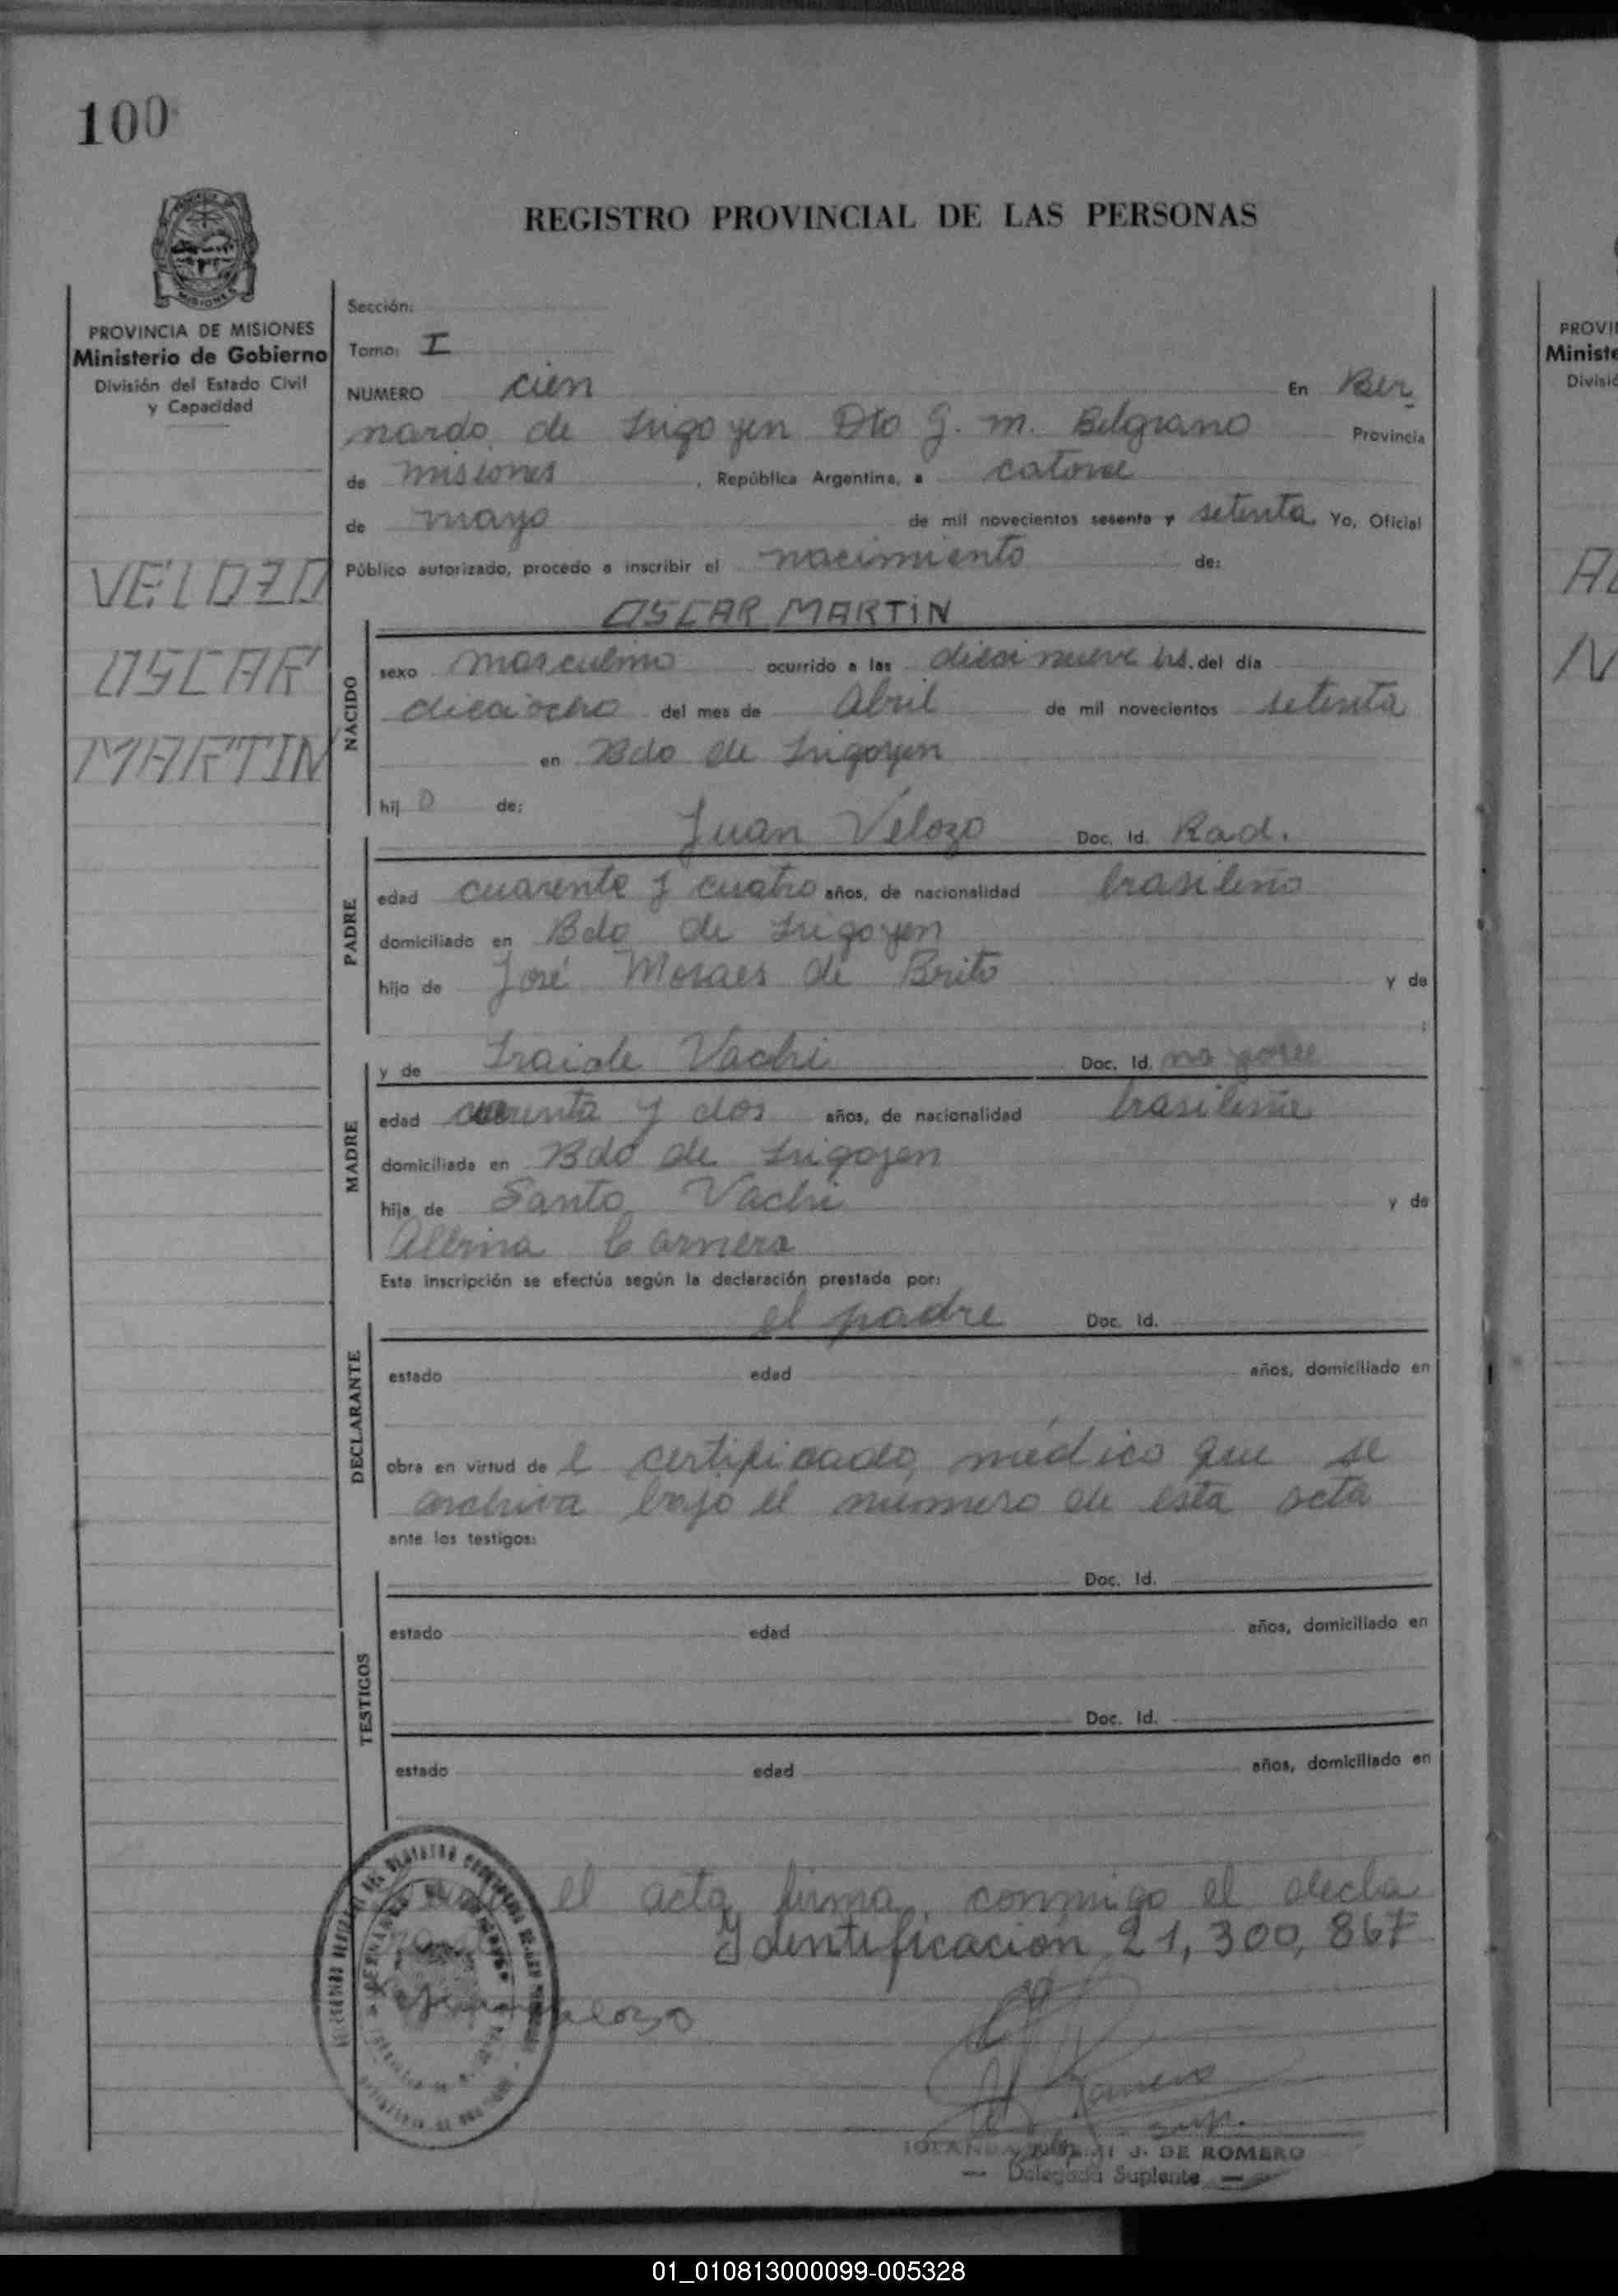 100
REGISTRO PROVINCIAL DE LAS PERSONAS
MISIONES
PROVINCIA DE MISIONES
Ministerio de Gobierno
División del Estado Civil
y Capacidad
VELOZO
OSCAR
MARTIN
Sección:
Tomo: I
NUMERO cien En Ber-
nardo de Irigoyen Dto G. M. Belgrano Provincia
de misiones, República Argentina, a catorce
de mayo de mil novecientos sesenta y setenta Yo, Oficial
Público autorizado, procedo a inscribir el nacimiento de:
OSCAR MARTIN
NACIDO
sexo masculino ocurrido a las diecinueve hs. del día
dieciocho del mes de Abril de mil novecientos setenta
en Bdo de Irigoyen
hij o de:
Juan Velozo Doc. Id. Rad.
PADRE
edad cuarenta y cuatro años, de nacionalidad brasileño
domiciliado en Bdo de Irigoyen
hijo de José Moraes de Brito y de
y de Iraide Vachi Doc. Id. no posee
MADRE
edad cuarenta y dos años, de nacionalidad brasileña
domiciliada en Bdo de Irigoyen
hija de Santo Vachi y de
Albina Carnera
Esta inscripción se efectúa según la declaración prestada por:
el padre Doc. Id.
DECLARANTE
estado edad años, domiciliado en
obra en virtud de l certificado médico que se
archiva bajo el numero de esta acta
ante los testigos:
Doc. Id.
TESTIGOS
estado edad años, domiciliado en
Doc. Id.
estado edad años, domiciliado en
el acta, firma, conmigo el decla
Identificación 21,300,867
J. DE ROMERO
— Delegada Suplente —
PROVI
Ministe
Divisió
01_010813000099-005328